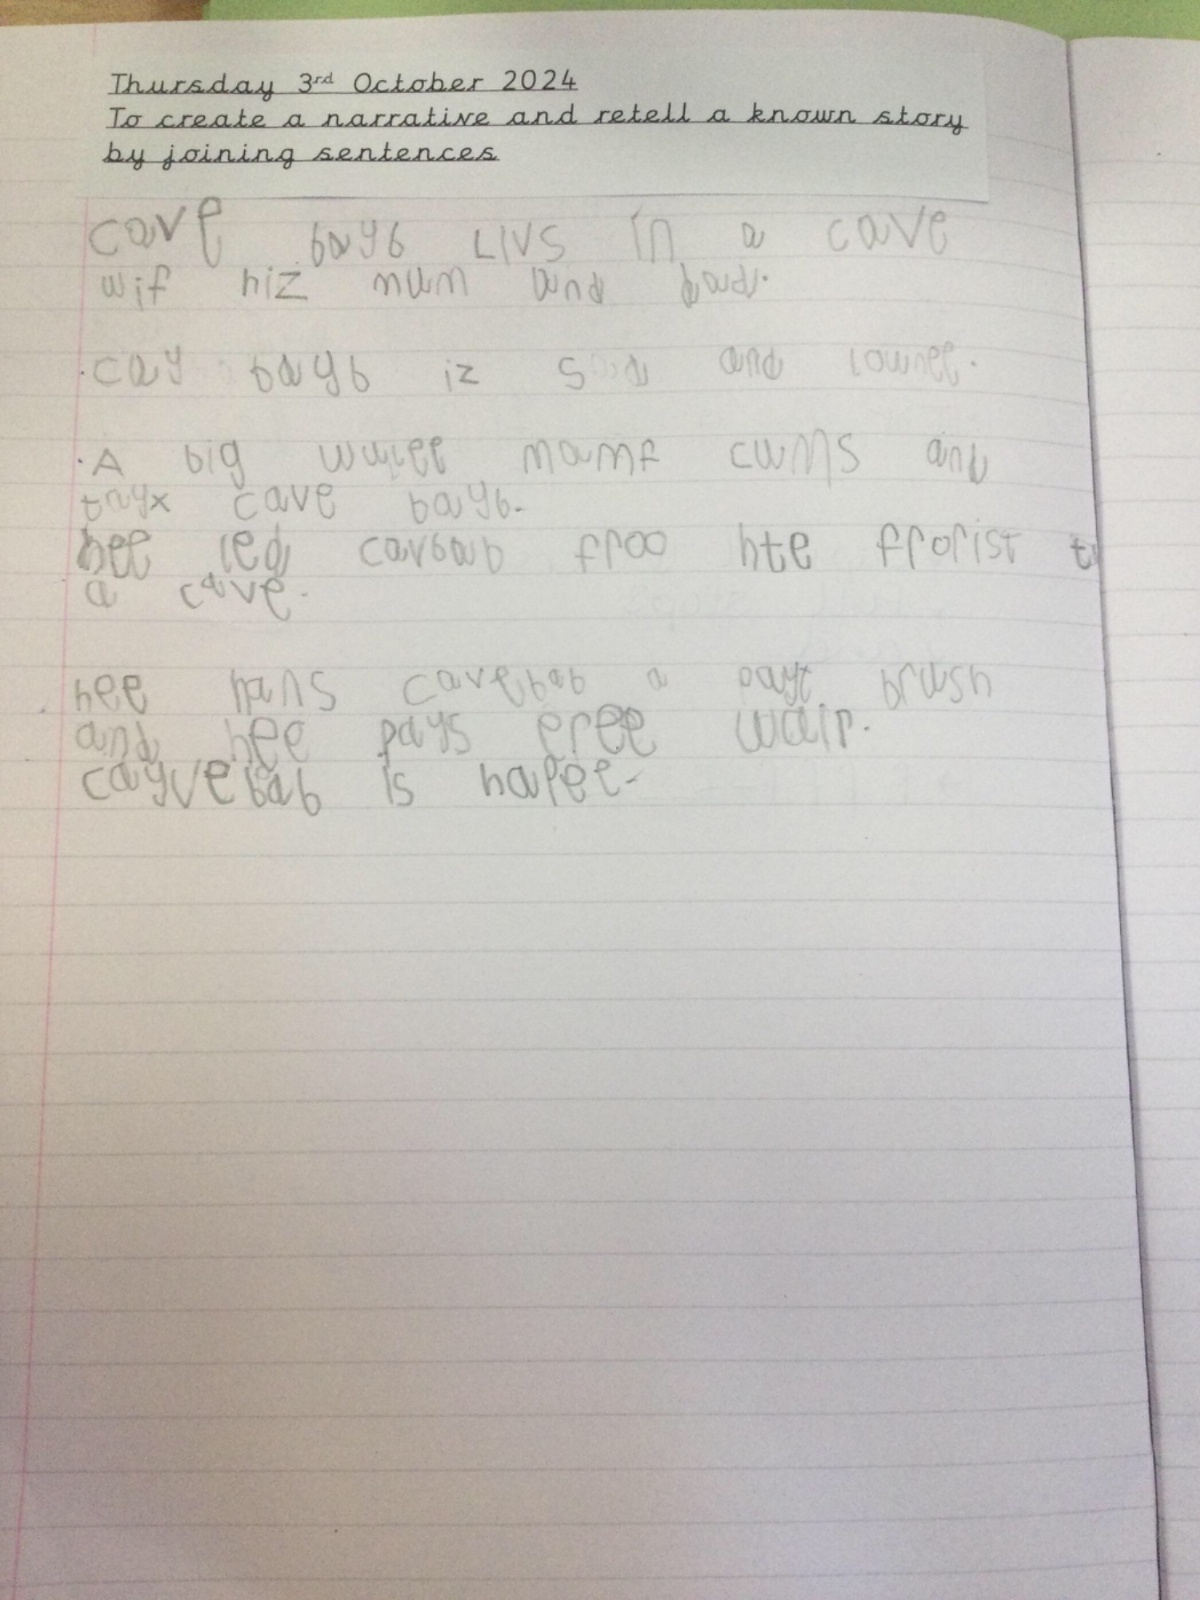 Thursday 3rd October 2024
To create a narrative and retell a known story
by joining sentences
cave bayb Livs in a cave
wif hiz mum and dad.
cay bayb iz sad and lownee.
A big wulee mamf cums and
cave bayb.
hee led cavbab froo hte fforist
a cave.
hee hans cavebab a payt brush
and hee pays eree wair.
cayvebab is hapee.